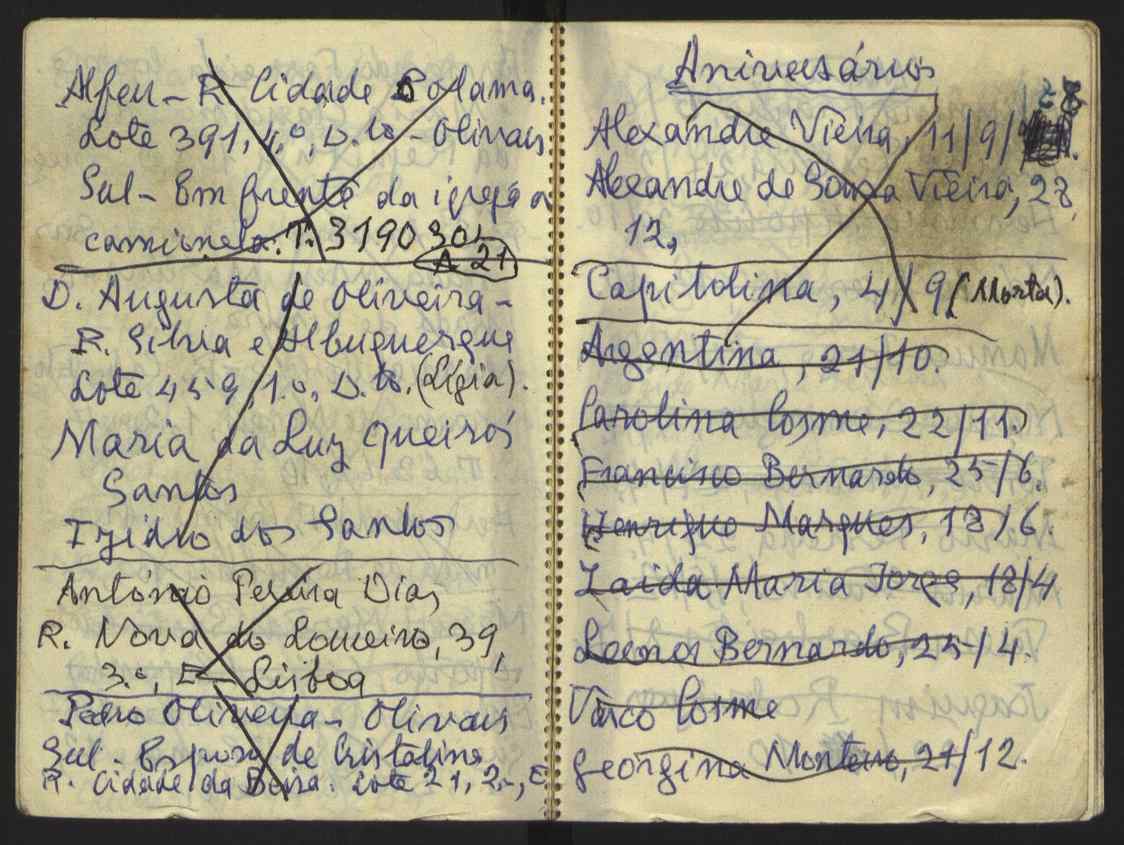 Alfeu - R. Cidade Bolama.
Lote 391, 4.º, D.to - Olivais
Sul - Em frente da igreja a
camioneta. T. 3190 30
A 21
D. Augusta de Oliveira -
R. Sílvia e Albuquerque
Lote 459, 1.º, D.to. (Lígia).
Maria da Luz Queirós
Santos
Izidro dos Santos
António Pereira Dias
R. Nova do Loureiro, 39,
3.º, E - Lisboa
Pedro Oliveira - Olivais
Sul - Esposo de Cristalina
R. Cidade da Beira. Lote 21, 2.º, E
Aniversários
Alexandre Vieira, 11/9/
Alexandre de Sousa Vieira, 28,
12,
Capitolina, 4/9 (Morta).
Argentina, 21/10.
Carolina Cosme, 22/11.
Francisco Bernardo, 25/6.
Henrique Marques, 18/6.
Zaida Maria Jorge, 18/4
Leonor Bernardo, 25/4.
Vasco Cosme
Georgina Monteiro, 21/12.